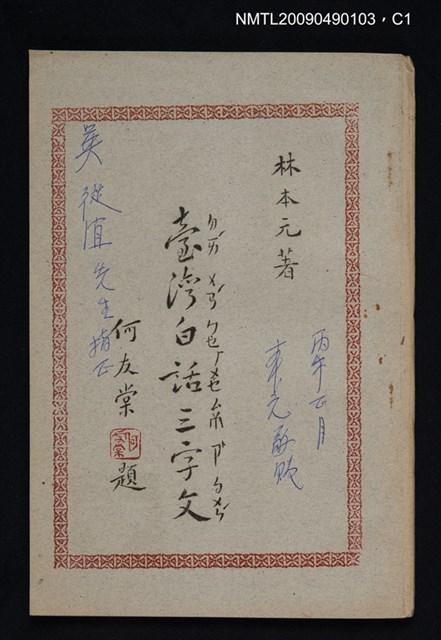 NMTL20090490103，C1
林本元著
丙午正月
本元敬贈
臺灣白話三字文
何友棠
題
吳從宜先生指正